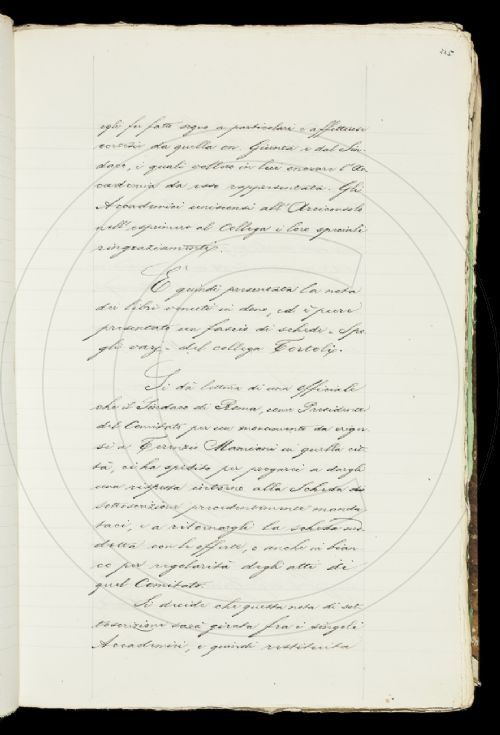 215
egli fu fatto segno a particolari e affettuose
cortesie da quella on. Giunta e dal Sin-
daco, i quali vollero in lui onorare l'Ac
cademia da esso rappresentata. Gli
Accademici unisconsi all'Arciconsolo
nell'esprimere al Collega i loro speciali
ringraziamenti.
È quindi presentata la nota
dei libri venuti in dono, ed è pure
presentato un fascio di schede e Spo
gli varj del collega Tortoli.
Si dà lettura di una Officiale
che il Sindaco di Roma, come Presidente
del Comitato per un monumento da eriger
si a Terenzio Mamiani in quella cit-
tà, ci ha spedito per pregarci a dargli
una risposta intorno alla Scheda di
sottoscrizione precedentemente manda
taci, e a ritornargli la scheda me-
desima con le offerte, o anche in bian
co per regolarità degli atti di
quel Comitato.
Si decide che questa nota di sot
toscrizione sarà girata fra i singoli
Accademici, e quindi restituita